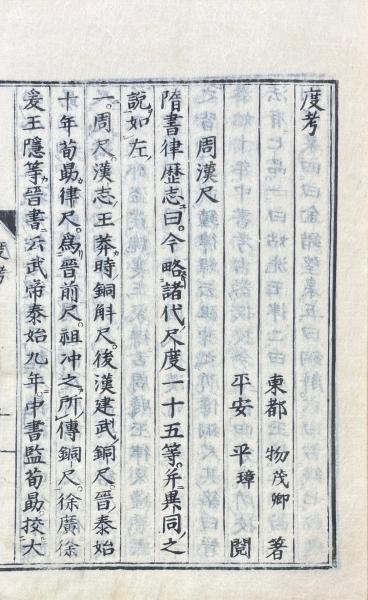 度考
東都 物茂卿 著
平安 平璋 閲
周漢尺
隋書律歷志曰今略諸代尺度一十五等并異同之
說如左
一周尺漢志王莽時銅斛尺後漢建武銅尺晉泰始
十年荀勗律尺爲晉前尺祖沖之所傳銅尺徐廣徐
爰王隱等晉書云武帝泰始九年中書監荀勗挍大
度考